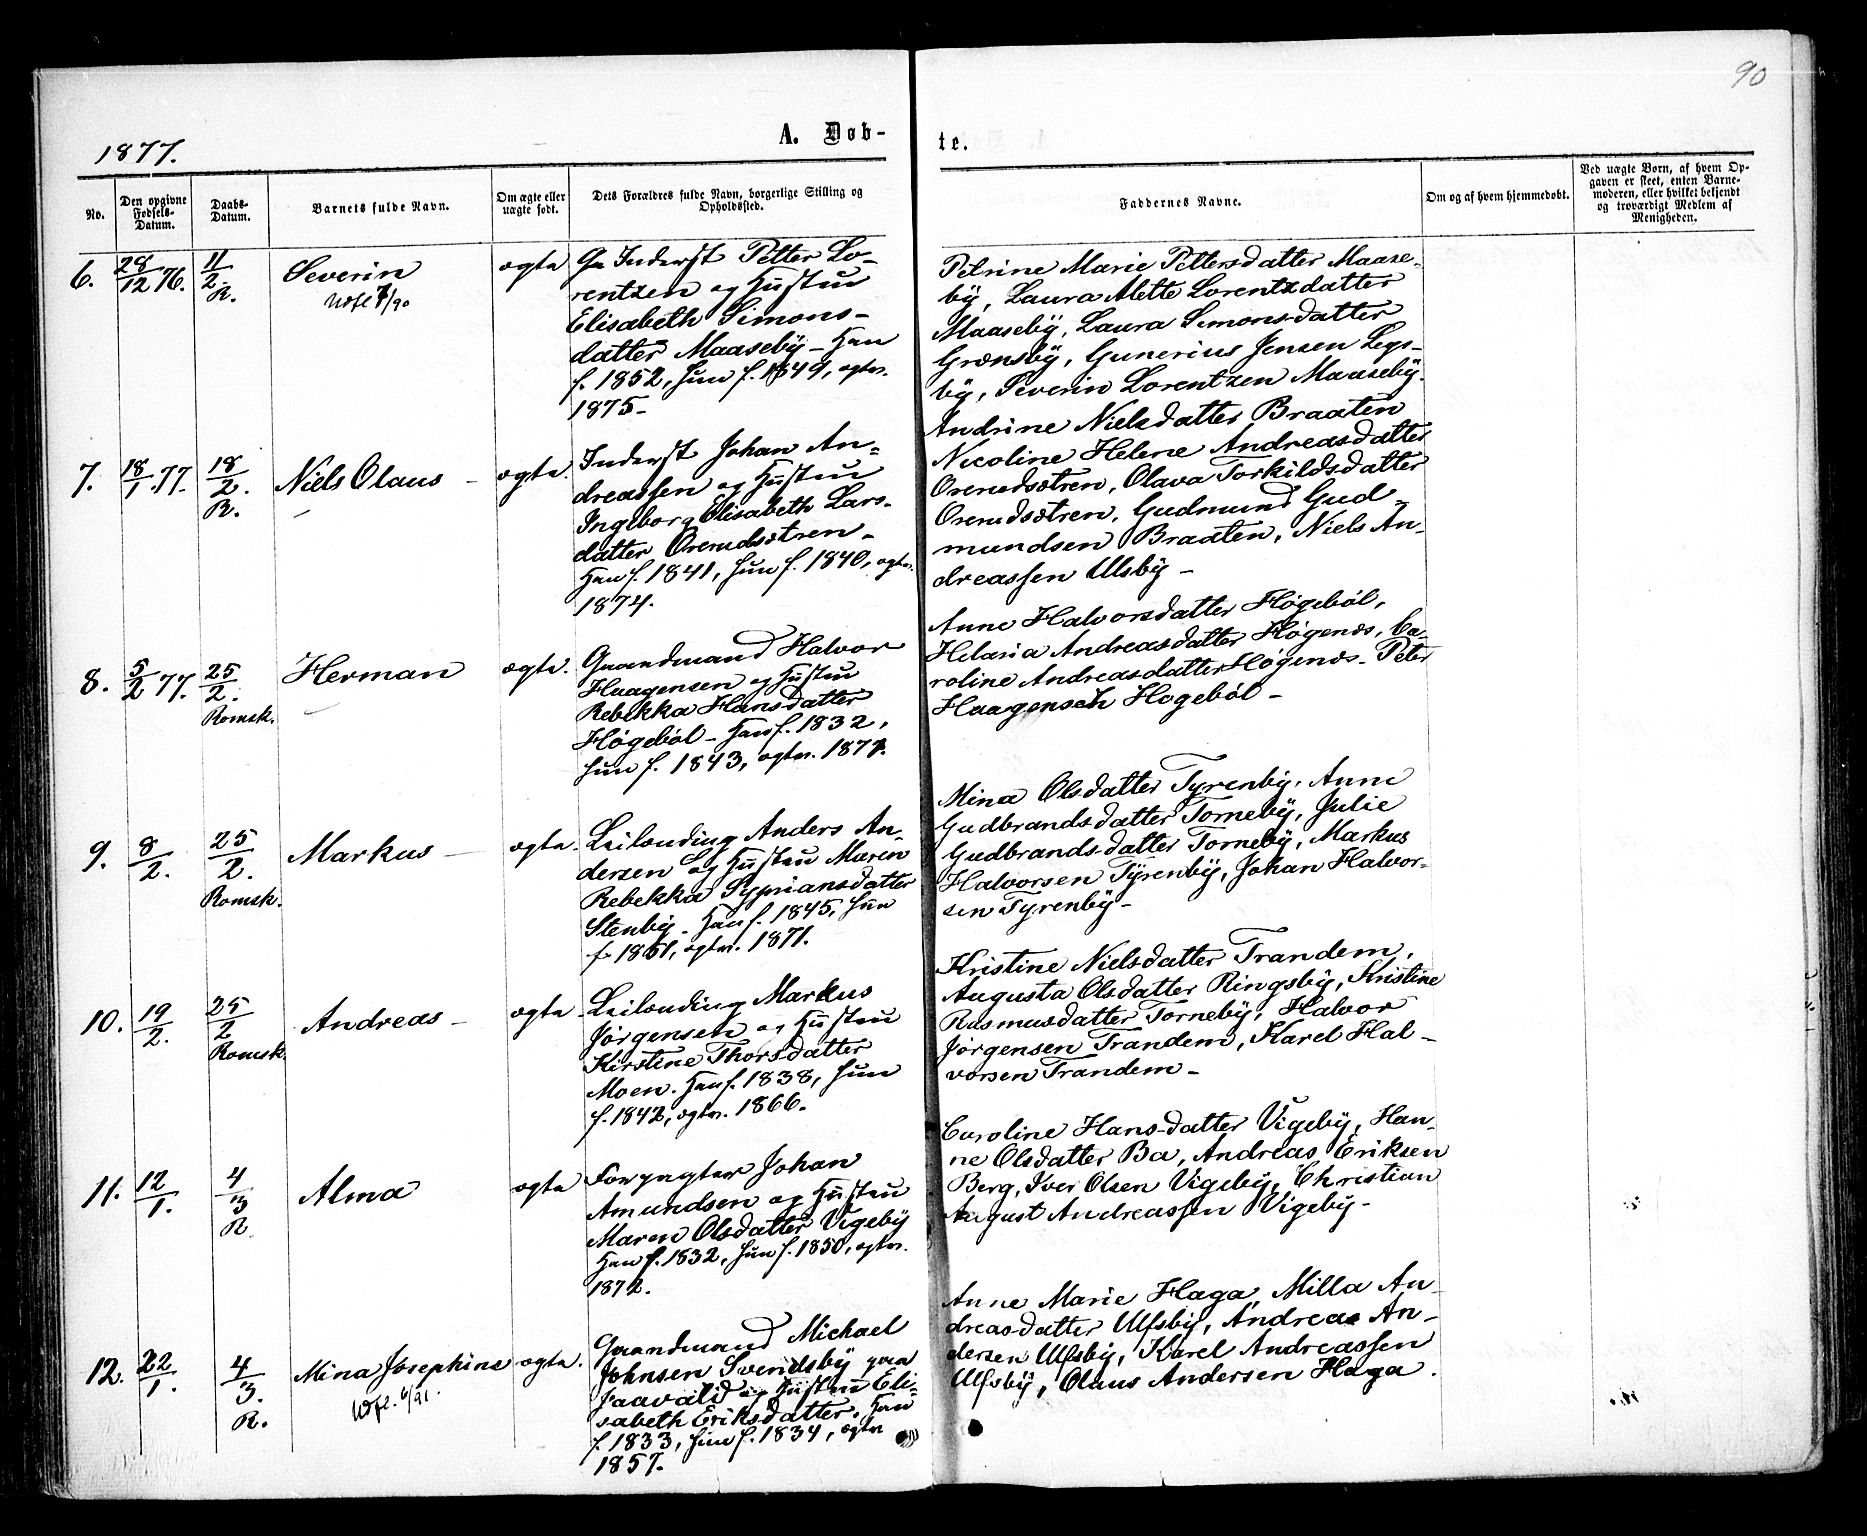 90
1877.
A. Døb-
te.
No.
Den opgivne Fødsels-Datum.
Daabs-Datum.
Barnets fulde Navn.
Om ægte eller uægte født.
Dets Forældres fulde Navn, borgerlige Stilling og Opholdssted.
Faddernes Navne.
Om og af hvem hjemmedøbt.
Ved uægte Børn, af hvem Op-
gaven er skeet, enten Barne-
moderen, eller hvilket beljendt
og troværdigt Medlem af
Menigheden.
6. 28/12 76. 11/2 R.
Severin
ægte
Inderst Petter Lo-
rentzen og Hustru
Elisabeth Simons-
datter Maaseby - Han
f. 1852, Hun f. 1849, ægtev.
1875-
Petrine Marie Pettersdatter Maase-
by, Laura Mette Lorentzdatter
Maaseby, Laura Simonsdatter
Grønsby, Gunerius Jensen Legs-
by, Severin Lorentzen Maaseby.
7. 18/1 77. 18/2. R.
Niels Olaus -
ægte.
Inderst Johan An-
dreassen og Hustru
Ingeborg Elisabeth Lars-
datter Ørerudsætren -
Han f. 1841, Hun f. 1840, ægtev.
1874.
Andrine Nielsdatter Braaten
Nicoline Helene Andreasdatter
Ørerudsætren, Olava Torkildsdatter
Ørerudsætren, Gudmund Gud-
mundsen Braaten, Niels An-
dreassen Ulsby -
8. 5/2 77. 25/2. Romsk.
Herman
ægte.
Gaardmand Halvor
Haagensen og Hustru
Rebekka Hansdatter
Høgebøl - Han f. 1832,
Hun f. 1843, ægtev. 1877.
Anne Halvorsdatter Høgebøl,
Helaria Andreasdatter Høgenæs, Ca-
roline Andreasdatter Høgenæs - Peter
Haagensen Høgebøl -
9. 8/2. 25/2. Romsk.
Markus -
ægte.
Leilending Anders An-
dersen og Hustru Maren
Rebekka Sypriansdatter
Stenby. Han f. 1845, Hun
f. 1851, ægtev. 1871.
Mina Olsdatter Tyrenby, Anne
Gudbrandsdatter Torneby, Julie
Gudbrandsdatter Torneby, Markus
Halvorsen Tyrenby, Johan Halvor-
sen Tyrenby -
10. 19/2. 25/2. Romsk.
Andreas -
ægte
Leilending Markus
Jørgensen og Hustru
Kirstine Thorsdatter
Moen. Han f. 1838, Hun
f. 1842, ægtev. 1866.
Kristine Nielsdatter Trandem,
Augusta Olsdatter Ringsby, Kristine
Rasmusdatter Torneby, Halvor
Jørgensen Trandem, Karel Hal-
vorsen Trandem -
11. 12/1. 4/3 R.
Alma
ægte
Forpagter Johan
Amundsen og Hustru
Maren Olsdatter Vigeby
Han f. 1832, Hun f. 1850, ægtev.
1872.
Caroline Hansdatter Vigeby, Han-
ne Olsdatter Ba, Andreas Eriksen
Berg, Iver Olsen Vigeby, Christian
August Andreassen Vigeby -
12. 22/1. 4/3. R.
Mina Josephine
ægte.
Gaardmand Michael
Johnsen Sverdsby paa
Jaavald og Hustru Eli-
sabeth Eriksdatter. Han
f. 1833, Hun f. 1834, ægtev
1857.
Anne Marie Haga, Milla An-
dreasdatter Ulfsby, Andreas An-
dersen Ulfsby, Karel Andreassen
Ulfsby, Olaus Andersen Haga.